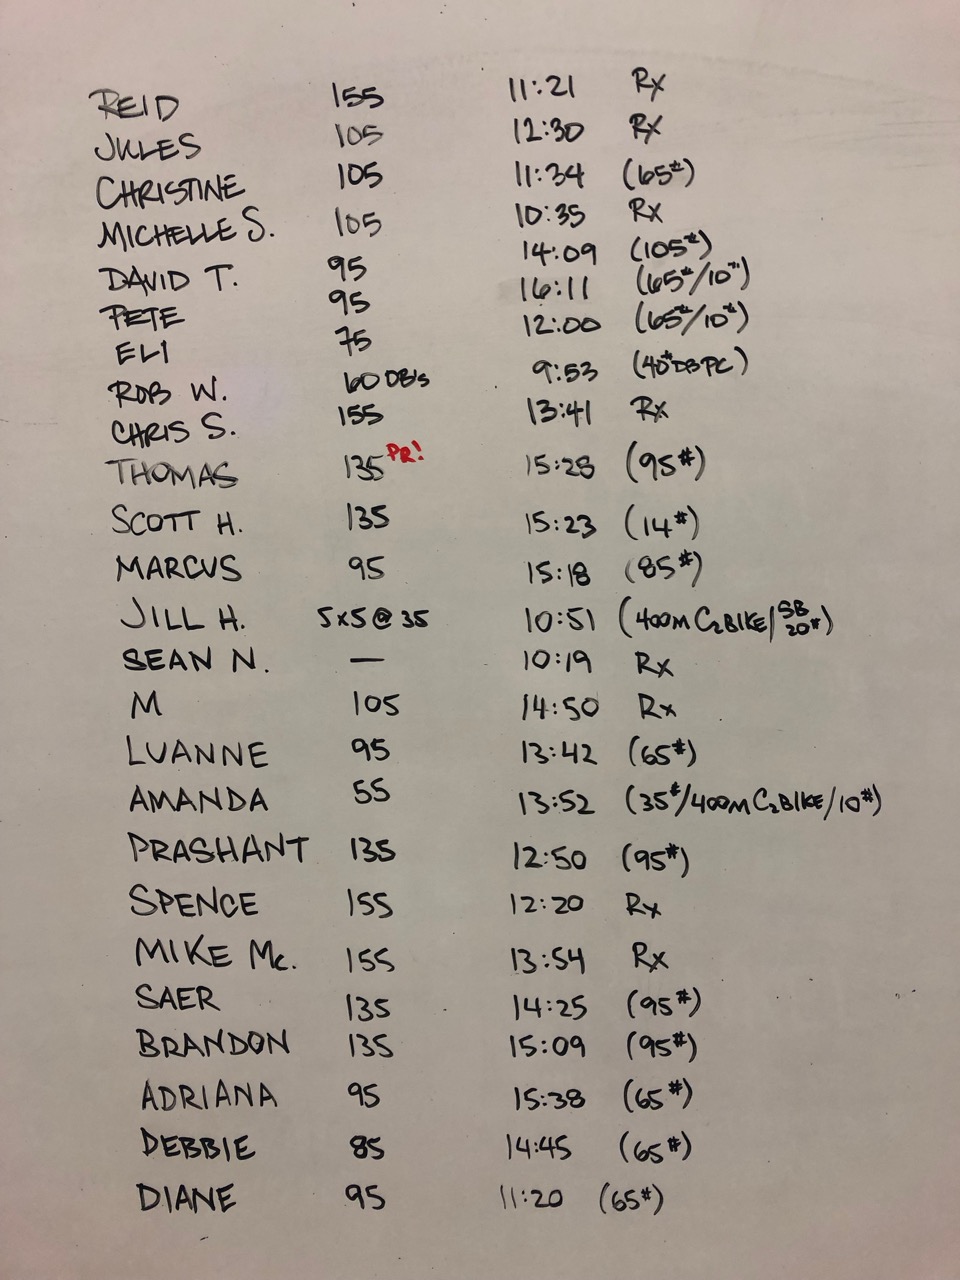 REID 155 11:21 Rx
JULES 105 12:30 Rx
CHRISTINE 105 11:34 (65#)
MICHELLE S. 105 10:35 Rx
DAVID T. 95 14:09 (105#)
PETE 95 16:11 (65#/10#)
ELI 75 12:00 (65#/10#)
ROB W. 60 DB's 9:53 (40# DB PC)
CHRIS S. 155 13:41 Rx
THOMAS 135 PR! 15:28 (95#)
SCOTT H. 135 15:23 (14#)
MARCUS 95 15:18 (85#)
JILL H. 5x5@35 10:51 (400M C2 BIKE/SB 20#)
SEAN N. — 10:19 Rx
M 105 14:50 Rx
LUANNE 95 13:42 (65#)
AMANDA 55 13:52 (35#/400M C2 BIKE/10#)
PRASHANT 135 12:50 (95#)
SPENCE 155 12:20 Rx
MIKE Mc. 155 13:54 Rx
SAER 135 14:25 (95#)
BRANDON 135 15:09 (95#)
ADRIANA 95 15:38 (65#)
DEBBIE 85 14:45 (65#)
DIANE 95 11:20 (65#)